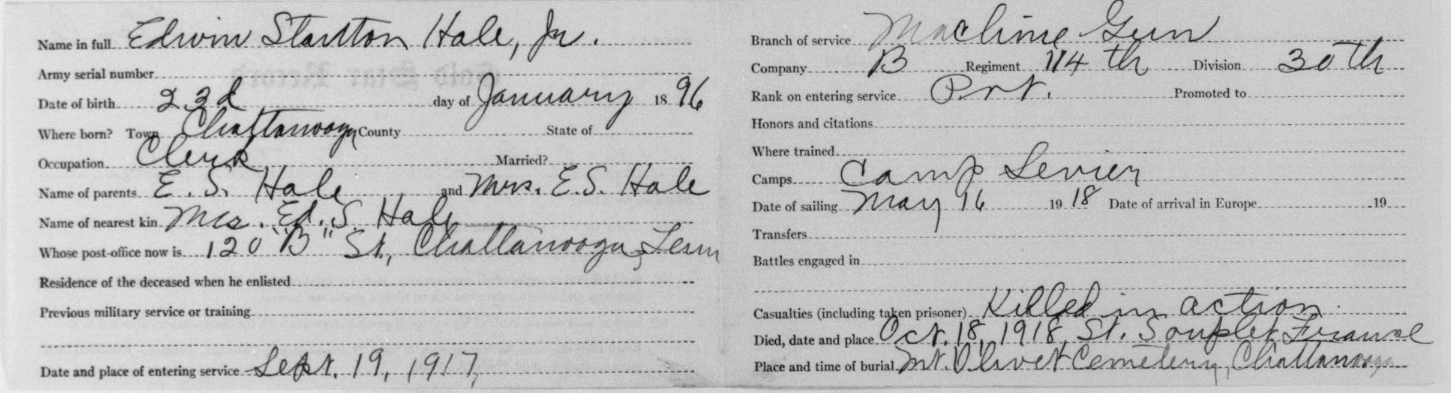 Name in full Edwin Stanton Hale, Jr.
Army serial number
Date of birth 23d day of January 1896
Where born? Town Chattanooga County State of
Occupation Clerk Married?
Name of parents E. S. Hale and Mrs. E. S. Hale
Name of nearest kin Mrs. Ed. S. Hale
Whose post-office now is 120 "B" St., Chattanooga, Tenn
Residence of the deceased when he enlisted
Previous military service or training
Date and place of entering service Sept. 19, 1917,
Branch of service Machine Gun
Company B Regiment 114th Division 30th
Rank on entering service Pvt. Promoted to
Honors and citations
Where trained
Camps Camp Sevier
Date of sailing May 16 1918 Date of arrival in Europe 19
Transfers
Battles engaged in
Casualties (including taken prisoner) Killed in action.
Died, date and place Oct. 18, 1918, St. Souplet France
Place and time of burial Mt. Olivet Cemetery, Chattanooga